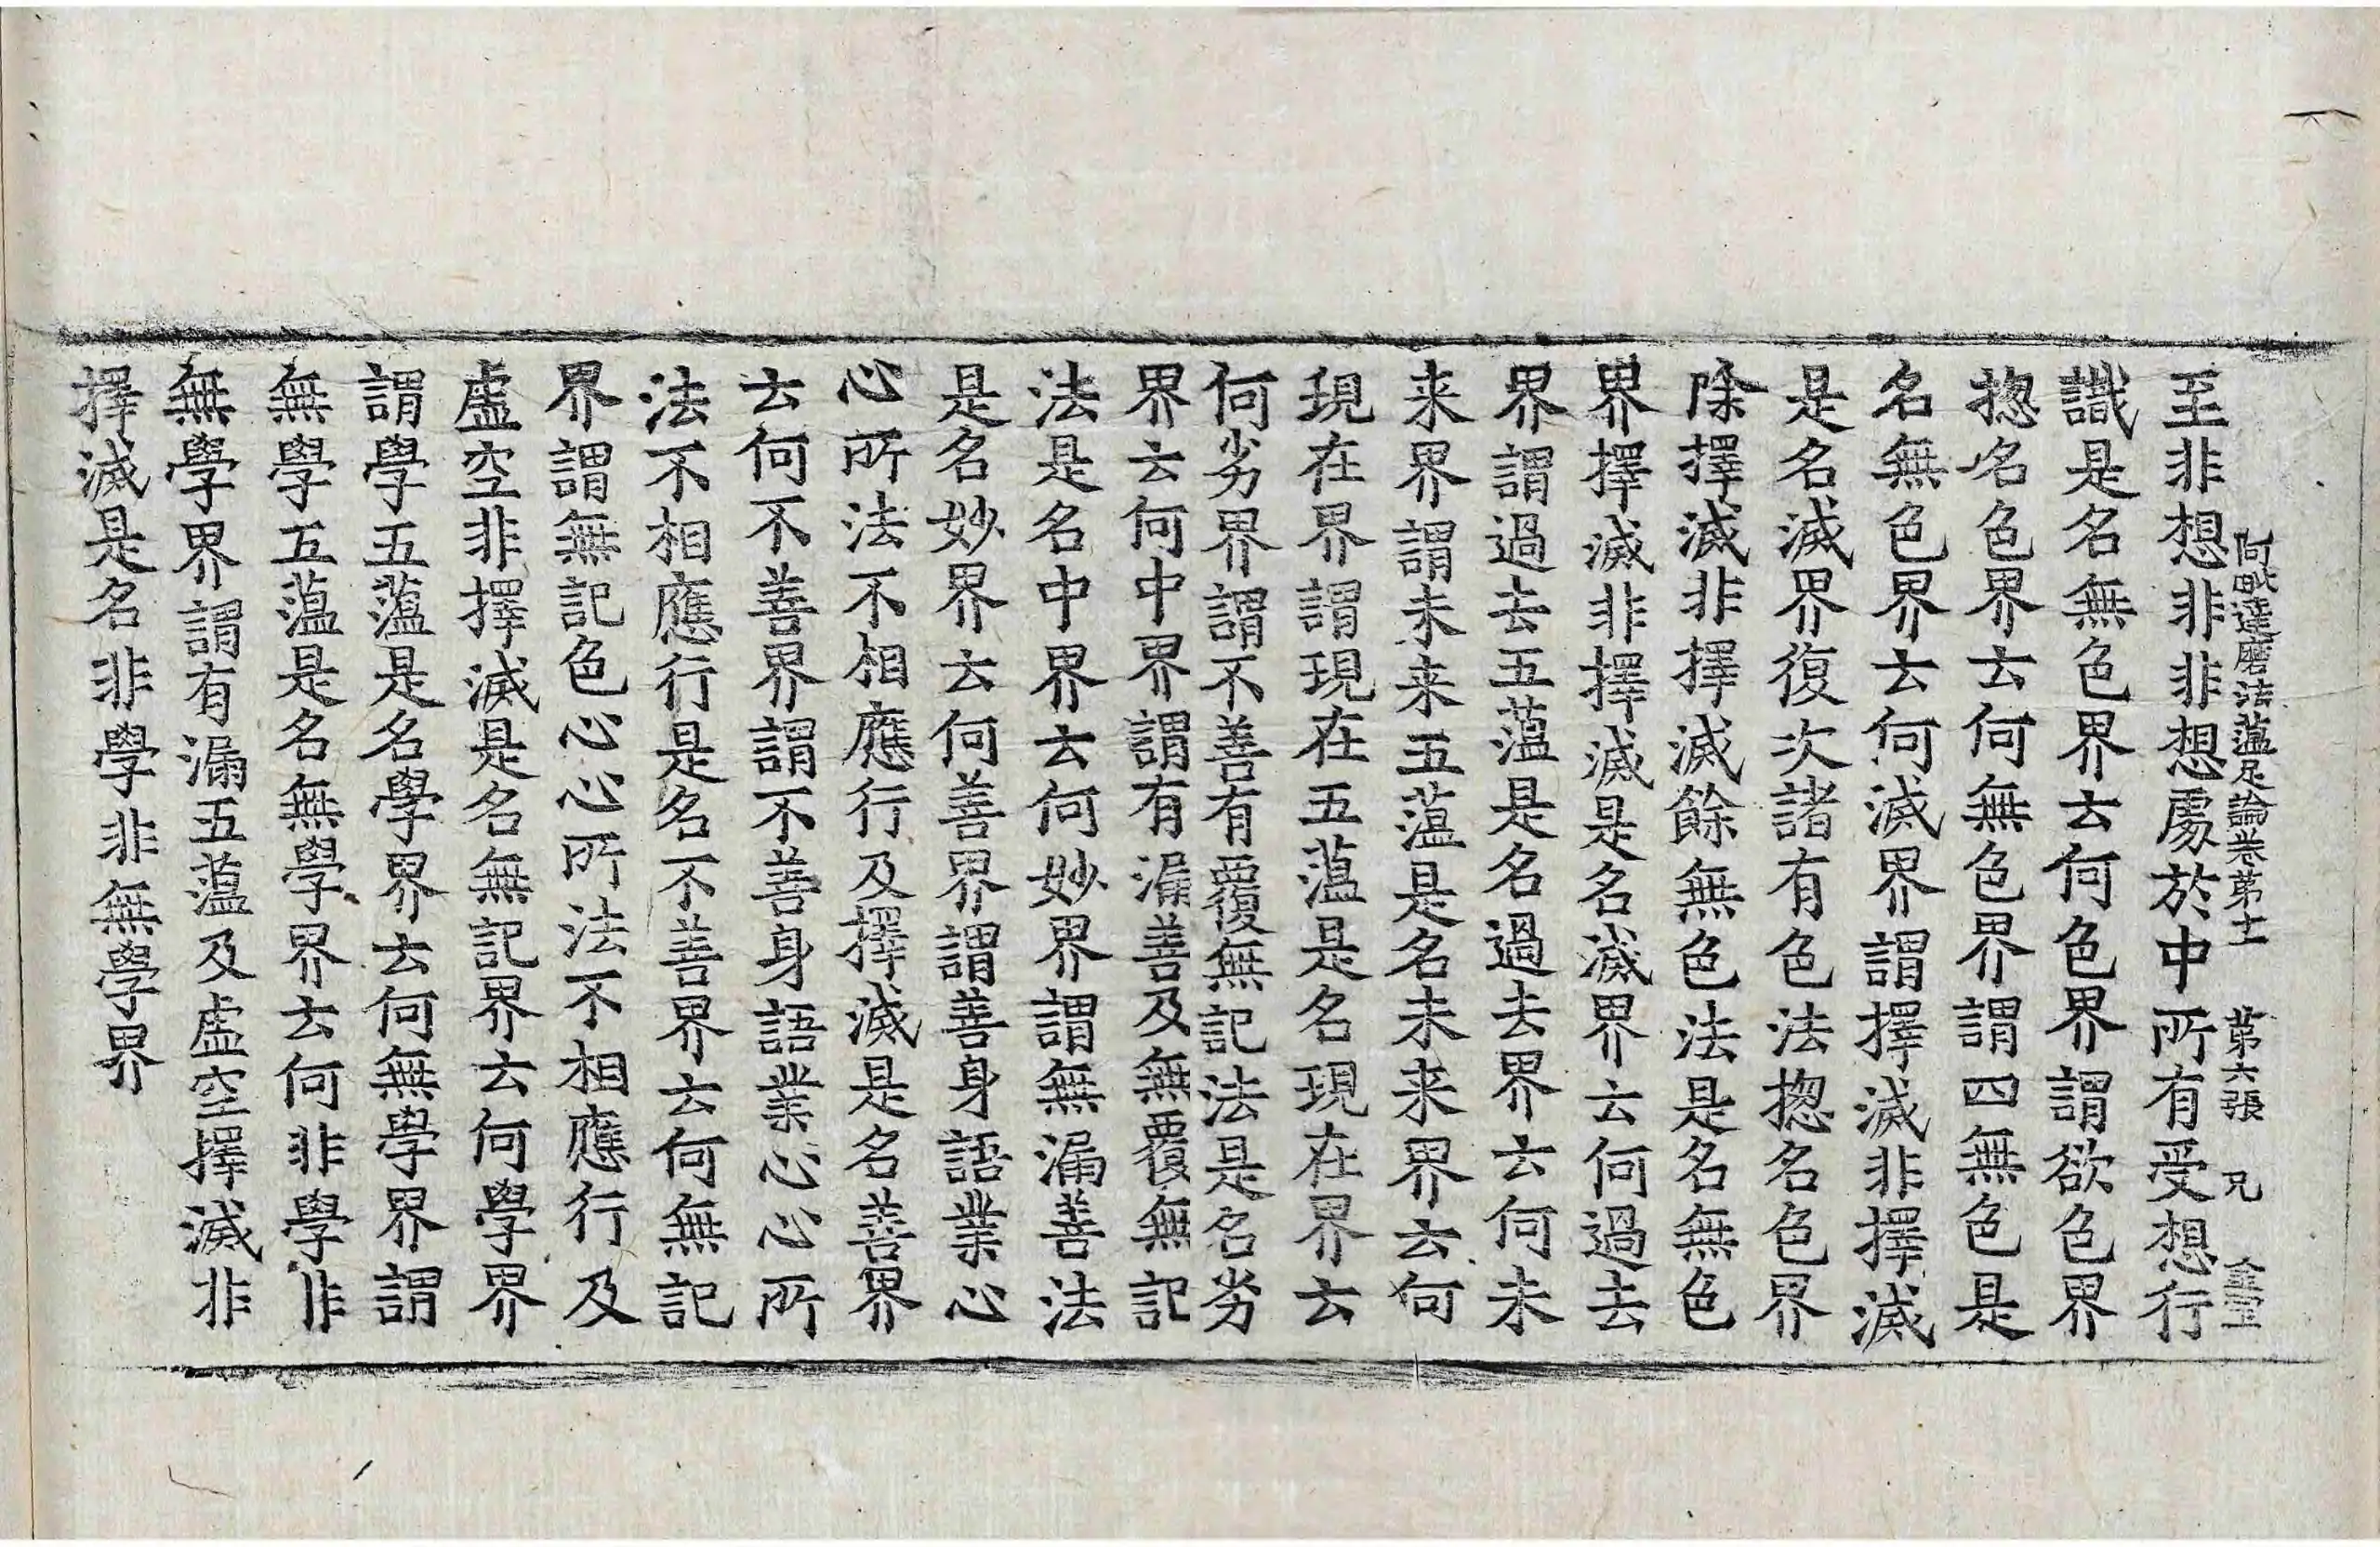 阿毗達磨法蘊足論卷第十一 第六張 兄
至非想非非想處於中所有受想行
識是名無色界云何色界謂欲色界
揔名色界云何無色界謂四無色是
名無色界云何滅界謂擇滅非擇滅
是名滅界復次諸有色法揔名色界
除擇滅非擇滅餘無色法是名無色
界擇滅非擇滅是名滅界云何過去
界謂過去五蘊是名過去界云何未
来界謂未来五蘊是名未来界云何
現在界謂現在五蘊是名現在界云
何劣界謂不善有覆無記法是名劣
界云何中界謂有漏善及無覆無記
法是名中界云何妙界謂無漏善法
是名妙界云何善界謂善身語業心
心所法不相應行及擇滅是名善界
云何不善界謂不善身語業心心所
法不相應行是名不善界云何無記
界謂無記色心心所法不相應行及
虛空非擇滅是名無記界云何學界
謂學五蘊是名學界云何無學界謂
無學五蘊是名無學界云何非學非
無學界謂有漏五蘊及虛空擇滅非
擇滅是名非學非無學界